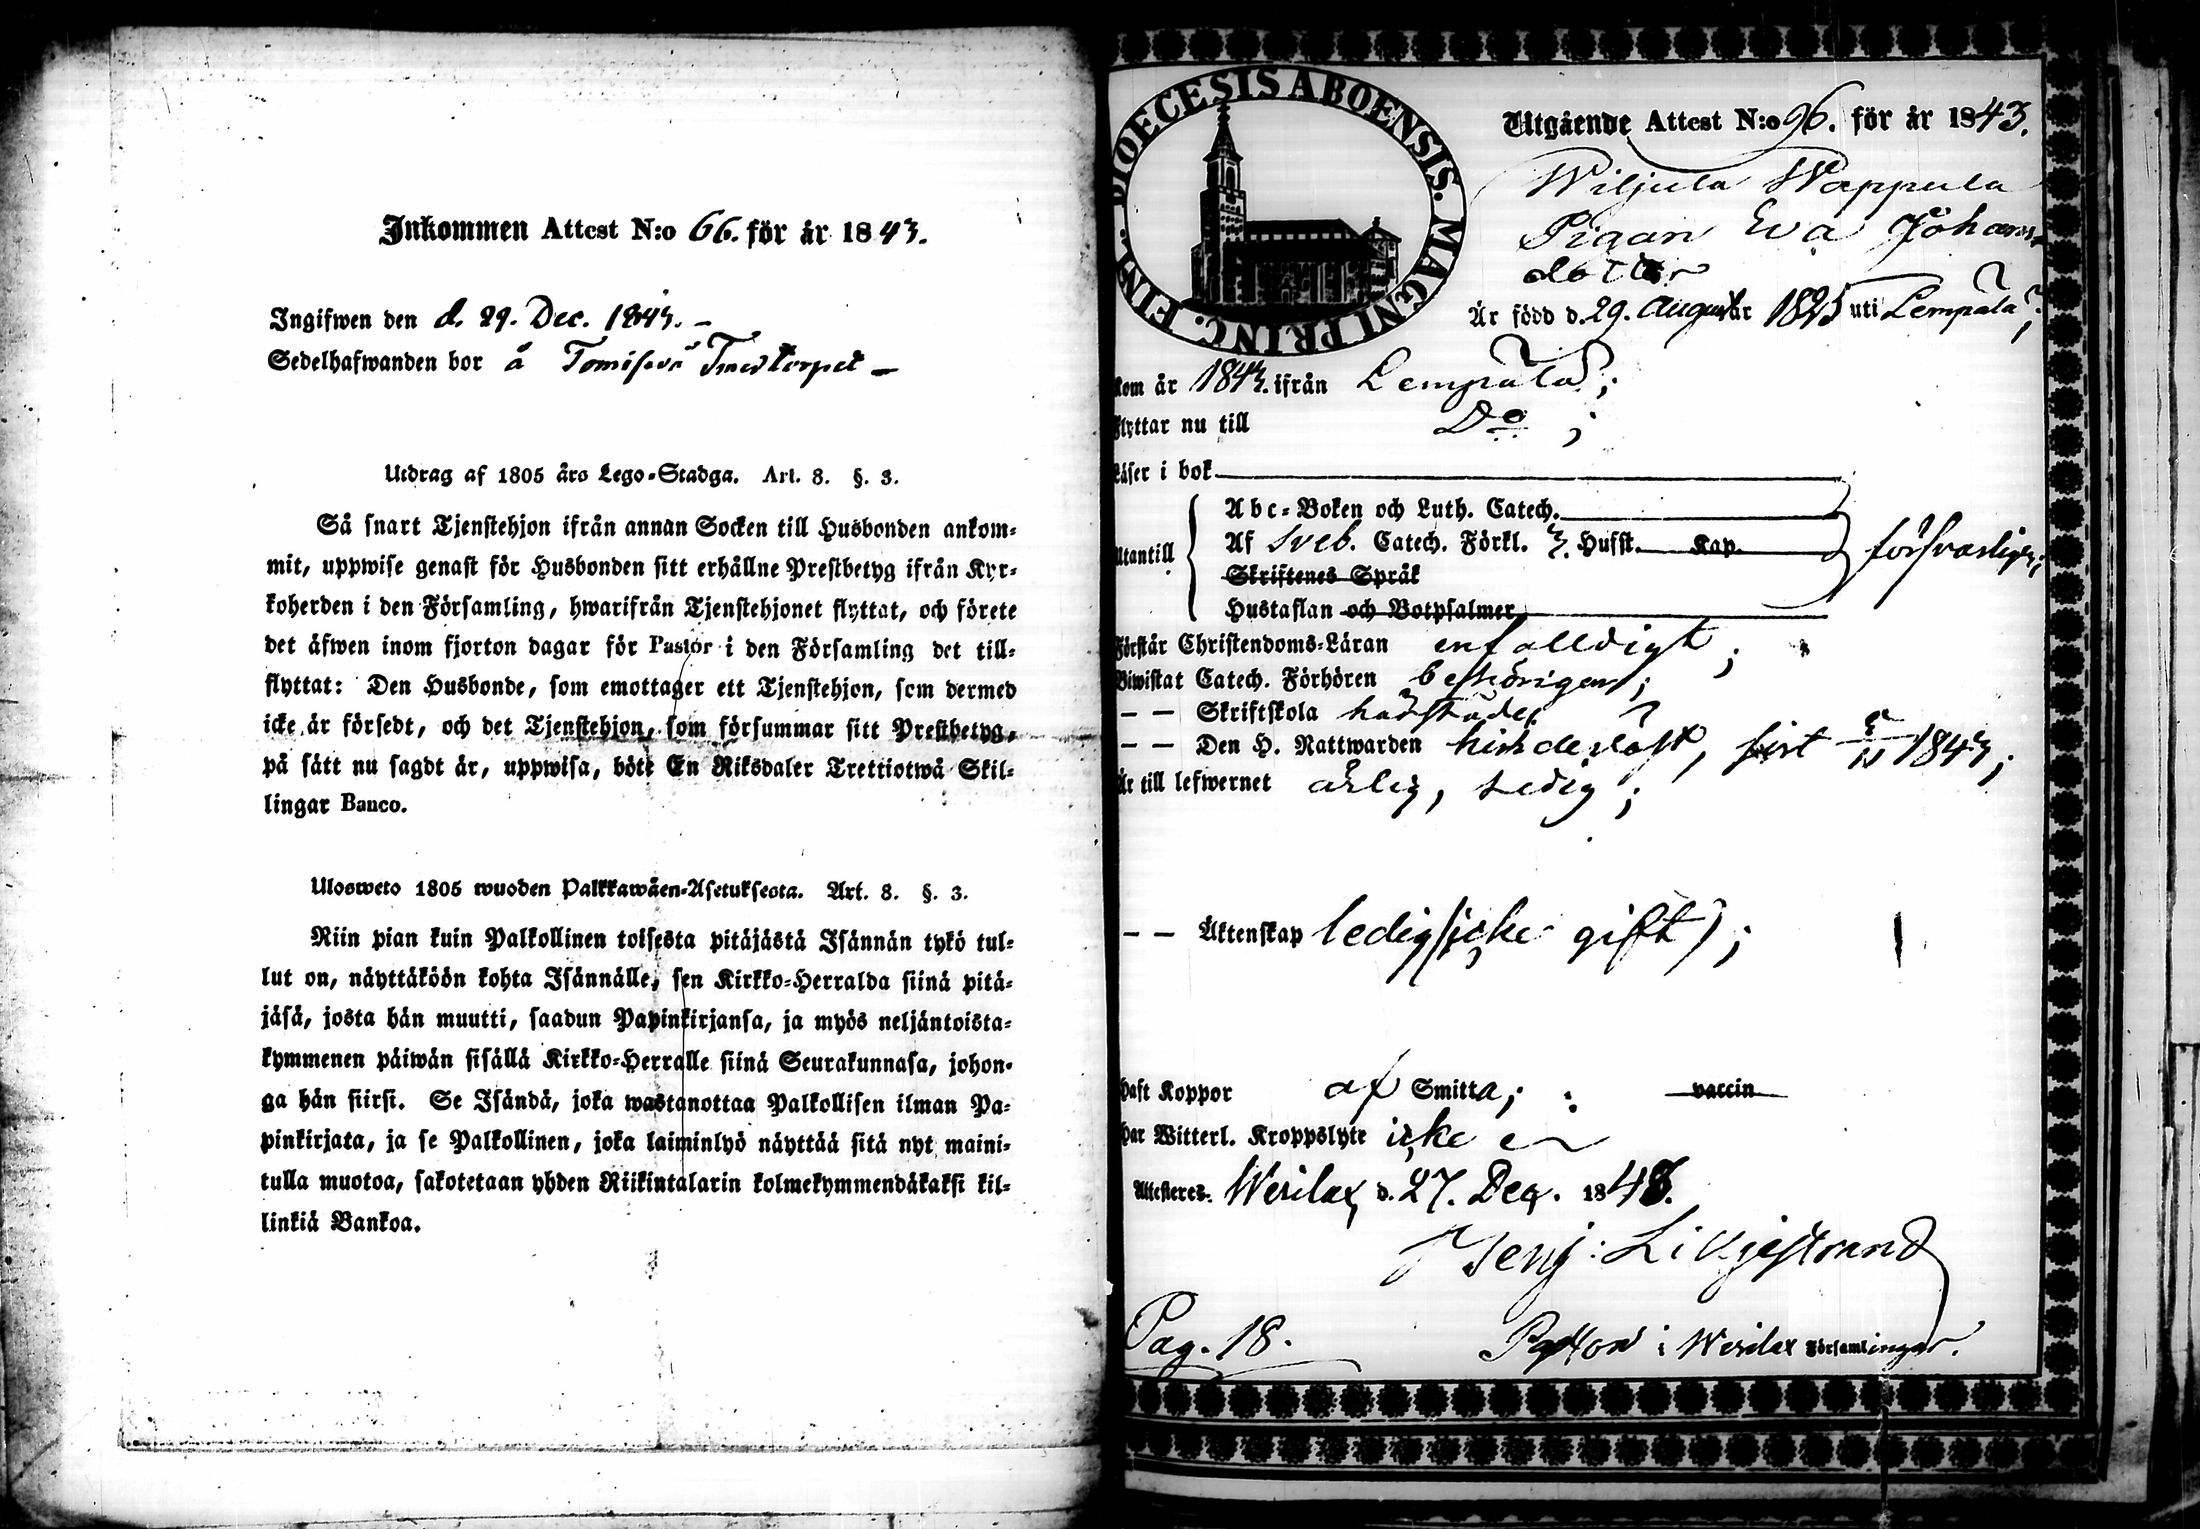 Inkommen Attest N:o 66. för år 1843.
Ingifwen den d. 29. Dec. 1843. –
Sedelhafwanden bor å
Utdrag af 1805 års Lego-Stadga. Art. 8. §. 3.
Så snart Tjenstehjon ifrån annan Socken till Husbonden ankom-
mit, uppwise genast för Husbonden sitt erhållne Prestbetyg ifrån Kyr-
koherden i den Församling, hwarifrån Tjenstehjonet flyttat, och förete
det äfwen inom fjorton dagar för Pastor i den Församling det till-
flyttat: Den Husbonde, som emottager ett Tjenstehjon, som dermed
icke är försedt, och det Tjenstehjon, som försummar sitt Prestbetyg,
på sätt nu sagdt är, uppwisa, böte En Riksdaler Trettiotwå Skil-
lingar Banco.
Ulosweto 1805 wuoden Palkkawäen-Asetuksesta. Art. 8. §. 3.
Niin pian kuin Palkollinen toisesta pitäjästä Isännän tykö tul-
lut on, näyttäköön kohta Isännälle, sen Kirkko-Herralda siinä pitä-
jäsä, josta hän muutti, saadun Papinkirjansa, ja myös neljäntoista-
kymmenen päiwän sisällä Kirkko-Herralle siinä Seurakunnasa, johon-
ga hän siirsi. Se Isändä, joka wastanottaa Palkollisen ilman Pa-
pinkirjata, ja se Palkollinen, joka laiminlyö näyttää sitä nyt maini-
tulla muotoa, sakotetaan yhden Riikintalarin kolmekymmendäkaksi kil-
linkiä Bankoa.
DIOECESIS ABOENSIS. MAGNI PRINC. FINL.
Utgående Attest N:o 96. för år 1843.
Wiljula Wappula
Pigan Eva Johans-
dotter
Är född d. 29. August år 1825 uti Lempäla;
Kom år 1843. ifrån Lempäla;
Flyttar nu till Do ;
Läser i bok
Abc-Boken och Luth. Catech.
Utantill Af Sveb. Catech. Förkl. 3. Hufst. Kap. försvarligen;
Skriftenes Språk
Hustaflan och Botpsalmer
Förstår Christendoms-Läran enfalldigt ;
Biwistat Catech. Förhören behörigen;
– – Skriftskola
– – Den H. Nattwarden hinderlöst, sist 1843;
Är till lefwernet ärlig, sedig ;
– – Äktenskap ledig (icke gift) ;
Haft Koppor af Smitta; vaccin
Har Witterl. Kroppslyte icke
Attesteres. Wesilax, d. 27. Dec. 1843.
Benj: Liljestrand
Pag. 18.
Pastor i Wesilax Församlingar.